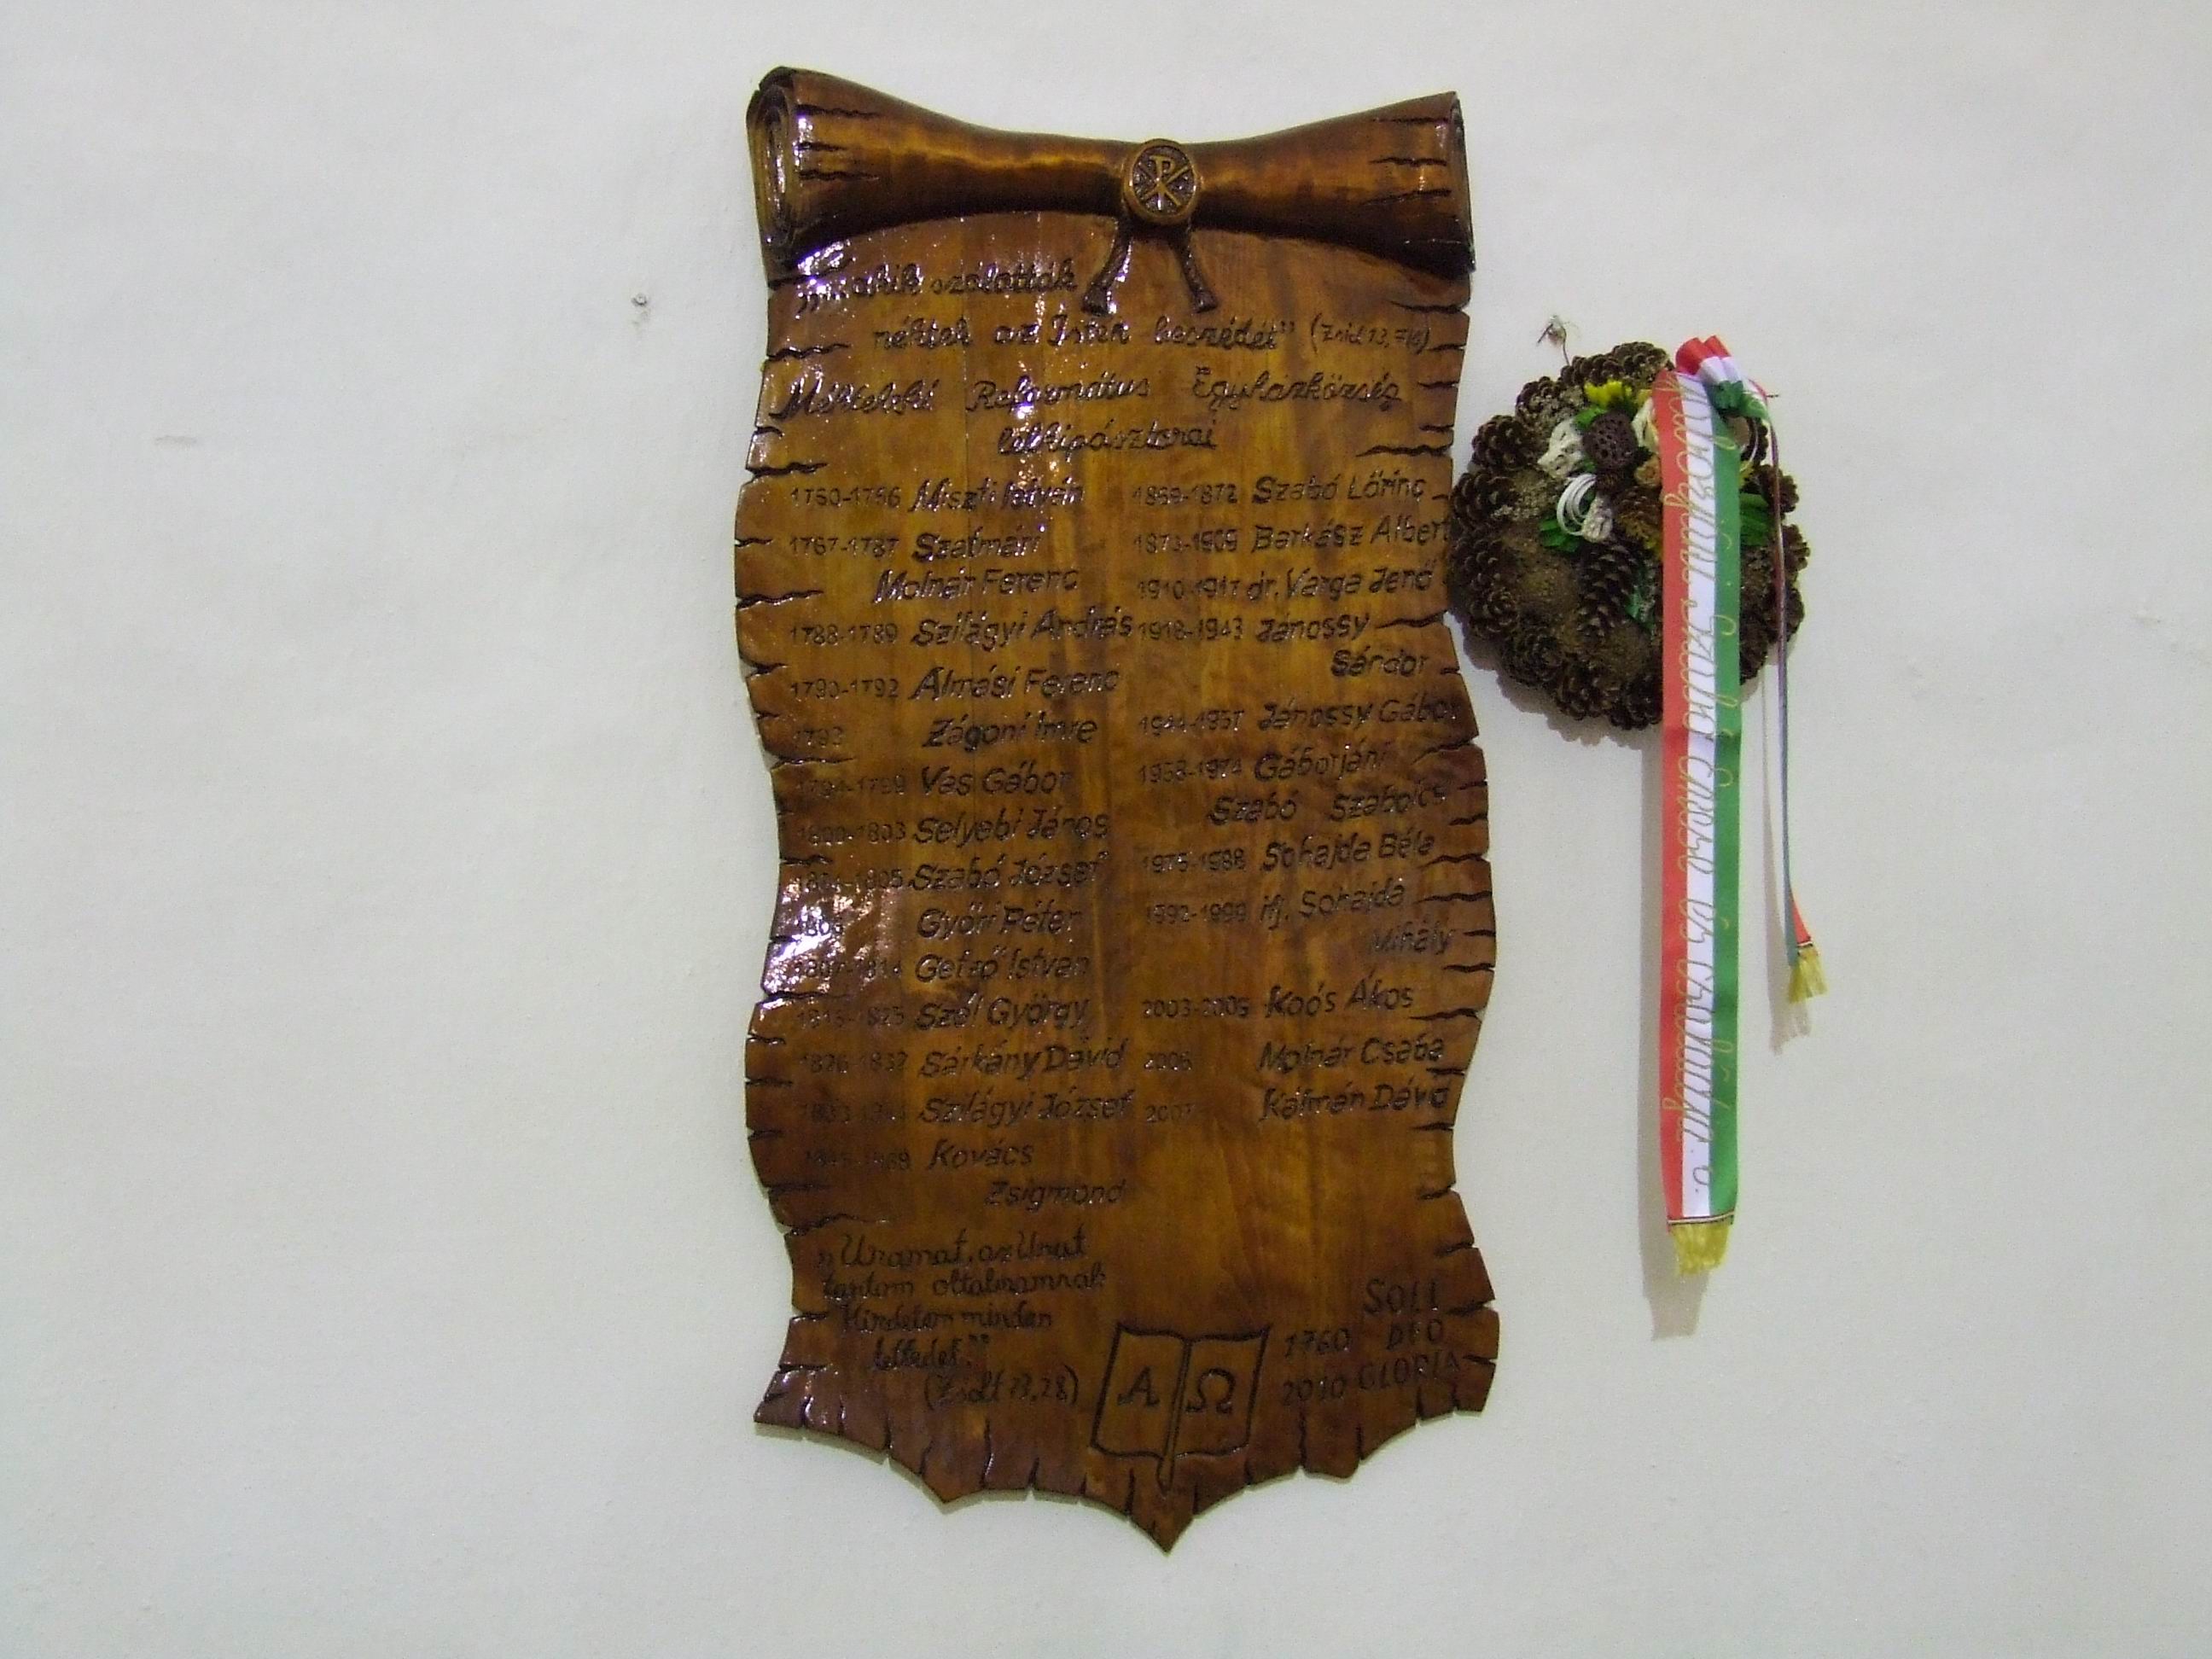 „...akik szólották
néktek az Isten beszédét” (Zsid 13,7/b)
Méhteleki Református Egyházközség
lelkipásztorai
1760-1766 Miszti István
1767-1787 Szatmári
Molnár Ferenc
1788-1789 Szilágyi András
1790-1792 Almási Ferenc
1793 Zágoni Imre
1794-1799 Vas Gábor
1800-1803 Selyebi János
1804-1805 Szabó József
Győri Péter
1807-1814 István
1815-1825 Szél György
1826-1832 Sárkány Dávid
Szilágyi József
Kovács
Zsigmond
1869-1872 Szabó Lőrinc
1873-1909 Barkász Albert
1910-1917 dr. Varga Jenő
1918-1943 Jánossy
Sándor
1944-1957 Jánossy Gábor
1958-1974 Gáborjáni
Szabó Szabolcs
1975-1988 Sohajda Béla
1992-1999 ifj. Sohajda
Mihály
2003-2005 Koós Ákos
2006 Molnár Csaba
2007 Kálmán Dávid
„Uramat, az Urat
tartom oltalmamnak
Hirdetem minden
tettedet.”
(Zsolt 73,28)
Α Ω
1760
2010
SOLI
DEO
GLORIA